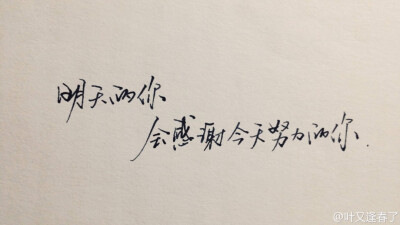 明天的你
会感谢今天努力的你.
@叶又逢春了